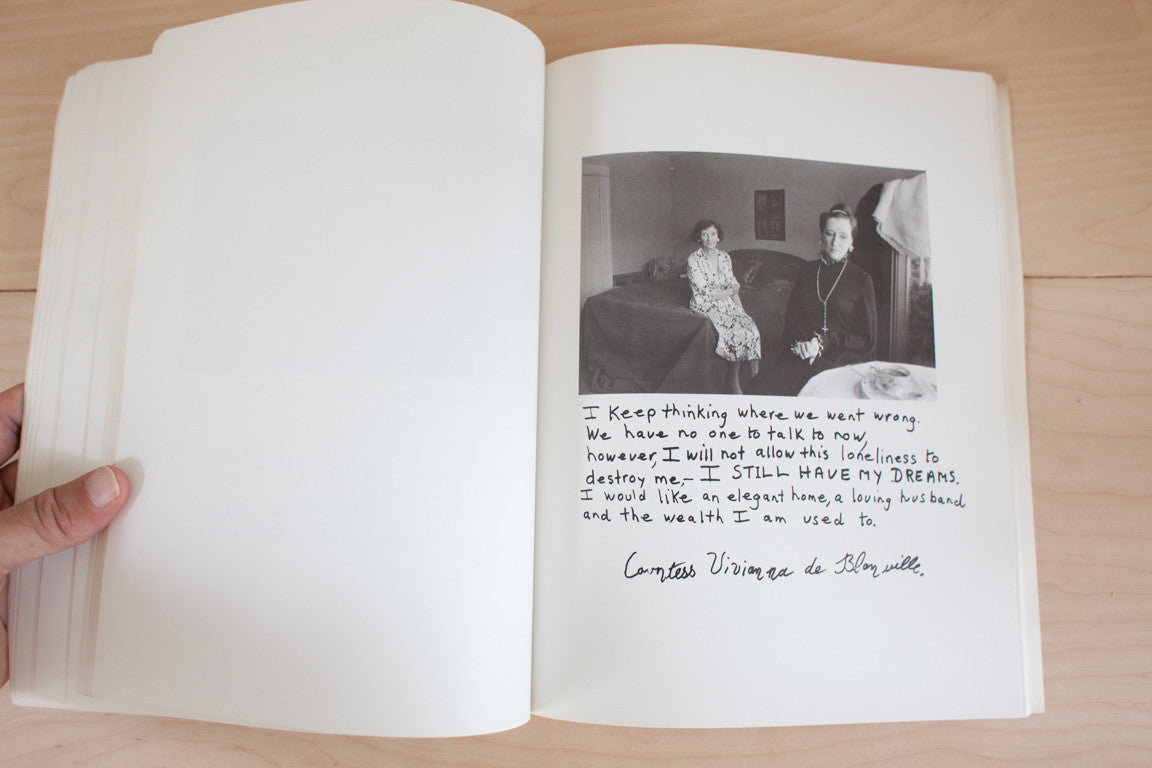 I keep thinking where we went wrong.
We have no one to talk to now,
however, I will not allow this loneliness to
destroy me,- I STILL HAVE MY DREAMS.
I would like an elegant home, a loving husband
and the wealth I am used to.
Countess Vivianna de Blonville.